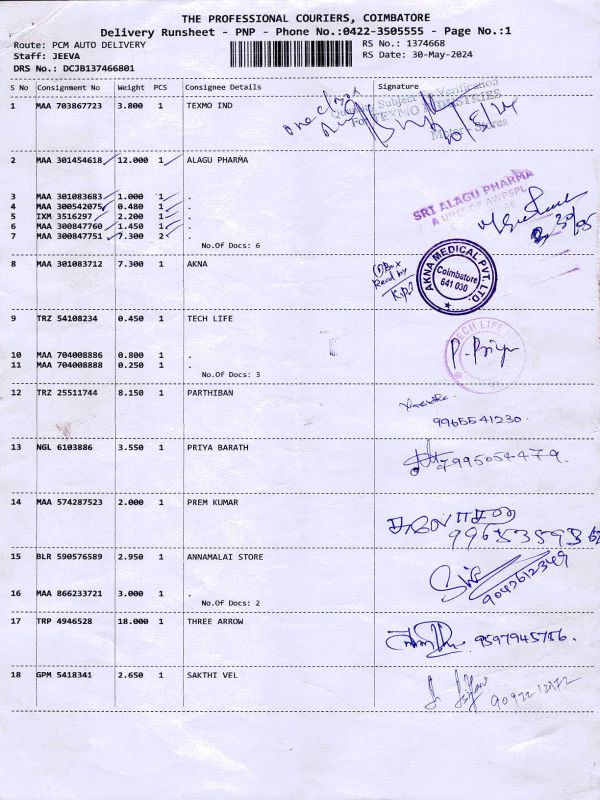 THE PROFESSIONAL COURIERS, COIMBATORE
Delivery Runsheet - PNP - Phone No.:0422-3505555 - Page No.:1
Route: PCM AUTO DELIVERY RS No.: 1374668
Staff: JEEVA RS Date: 30-May-2024
DRS No.: DCJB137466801
S No Consignment No Weight PCS Consignee Details Signature
1 MAA 703867723 3.800 1 TEXMO IND
Subject To Verification
For TEXMO INDUSTRIES
Stores
2 MAA 301454618 12.000 1 ALAGU PHARMA
3 MAA 301083683 1.000 1 .
4 MAA 300542075 0.480 1 .
5 IXM 3516297 2.200 1 .
6 MAA 300847760 1.450 1 .
7 MAA 300847751 7.300 2 .
No.Of Docs: 6
SRI ALAGU PHARMA
8 MAA 301083712 7.300 1 AKNA
AKNA MEDICAL PVT. LTD.
Coimbatore
641 030
9 TRZ 54108234 0.450 1 TECH LIFE
TECH LIFE
P. Priya
10 MAA 704008886 0.800 1 .
11 MAA 704008888 0.250 1 .
No.Of Docs: 3
12 TRZ 25511744 8.150 1 PARTHIBAN
9965541230.
13 NGL 6103886 3.550 1 PRIYA BARATH
7995054479.
14 MAA 574287523 2.000 1 PREM KUMAR
15 BLR 590576589 2.950 1 ANNAMALAI STORE
9042612349
16 MAA 866233721 3.000 1 .
No.Of Docs: 2
17 TRP 4946528 18.000 1 THREE ARROW
9597945786.
18 GPM 5418341 2.650 1 SAKTHI VEL